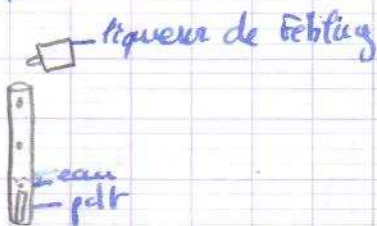 liqueur de Fehling
eau
pdt